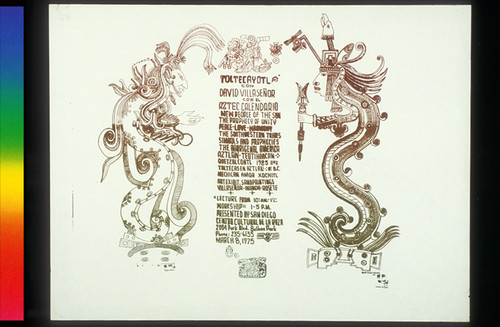 TOLTECAYOTL
CON
DAVID VILLASEÑOR
CON EL
AZTEC CALENDARIO
NEW PEOPLE OF THE SUN
THE PROPHECY OF UNITY
PEACE-LOVE-HARMONY
THE SOUTHWESTERN TRIBES
SYMBOLS AND PROPHECIES
THE ABORIGENAL AMERICA
AZTLAN-TEOTIHUACAN-
QUETZALCOATL
TOLTECAS EN AZTLAN
MECHICAN AMOR XOCHITL
ART EXHIBIT, SANDPAINTINGS
LECTURE FROM 10:AM-
WORKSHOP— 1-5 P.M.
PRESENTED BY SAN DIEGO
CENTRO CULTURAL DE LA RAZA
2004 Park Blvd. Balboa Park
Phone: 235-6135
MARCH 8, 1975